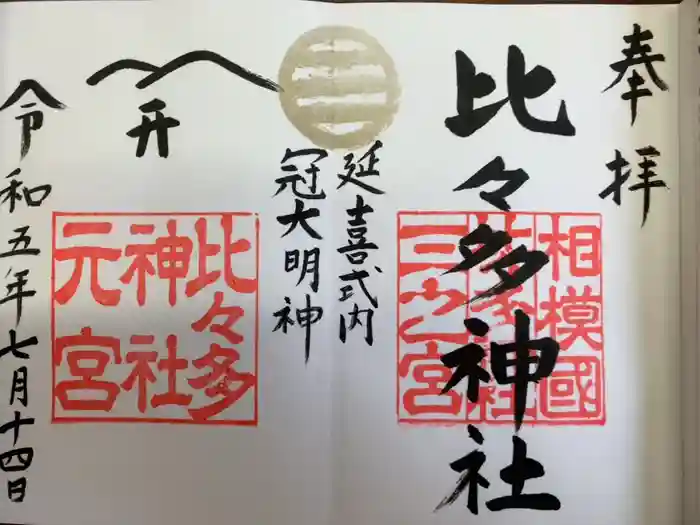 奉拝
比々多神社
相模國
三之宮
延喜式内
冠大明神
比々多
神社
元宮
令和五年七月十四日